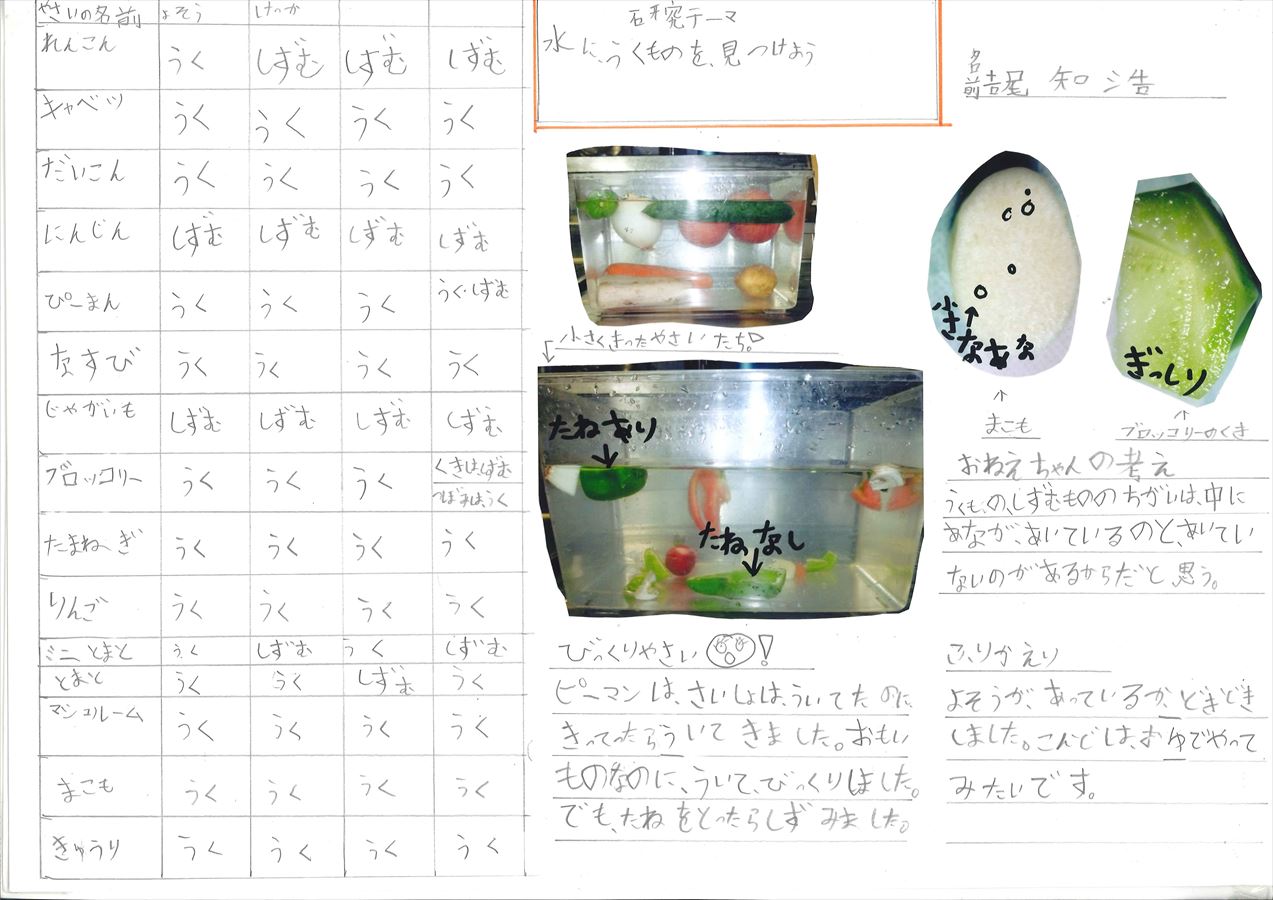 やさいの名前 よそう けっか
れんこん うく しずむ しずむ しずむ
キャベツ うく うく うく うく
だいこん うく うく うく うく
にんじん しずむ しずむ しずむ しずむ
ぴーまん うく うく うく うく・しずむ
なすび うく うく うく うく
じゃがいも しずむ しずむ しずむ しずむ
ブロッコリー うく うく うく くきは、しずむ
つぼみは、うく
たまねぎ うく うく うく うく
りんご うく うく うく うく
ミニとまと うく しずむ うく しずむ
とまと うく うく しずむ うく
マシュルーム うく うく うく うく
まこも うく うく うく うく
きゅうり うく うく うく うく
研究テーマ
水に、うくものを、見つけよう
名前 知浩
小さくきったやさいたち。
たねあり
たねなし
びっくりやさい !
ピーマンは、さいしょは、ういてたのに
きってったらういてきました。おもい
ものなのに、ういて、びっくりしました。
でも、たねをとったらしずみました。
小さ
なあな
ぎっしり
まこも
ブロッコリーのくき
おねえちゃんの考え
うくもの、しずむもののちがいは、中に
あなが、あいているのと、あいてい
ないのがあるからだと思う。
ふりかえり
よそうが、あっているか、どきどき
しました。こんどは、おゆでやって
みたいです。